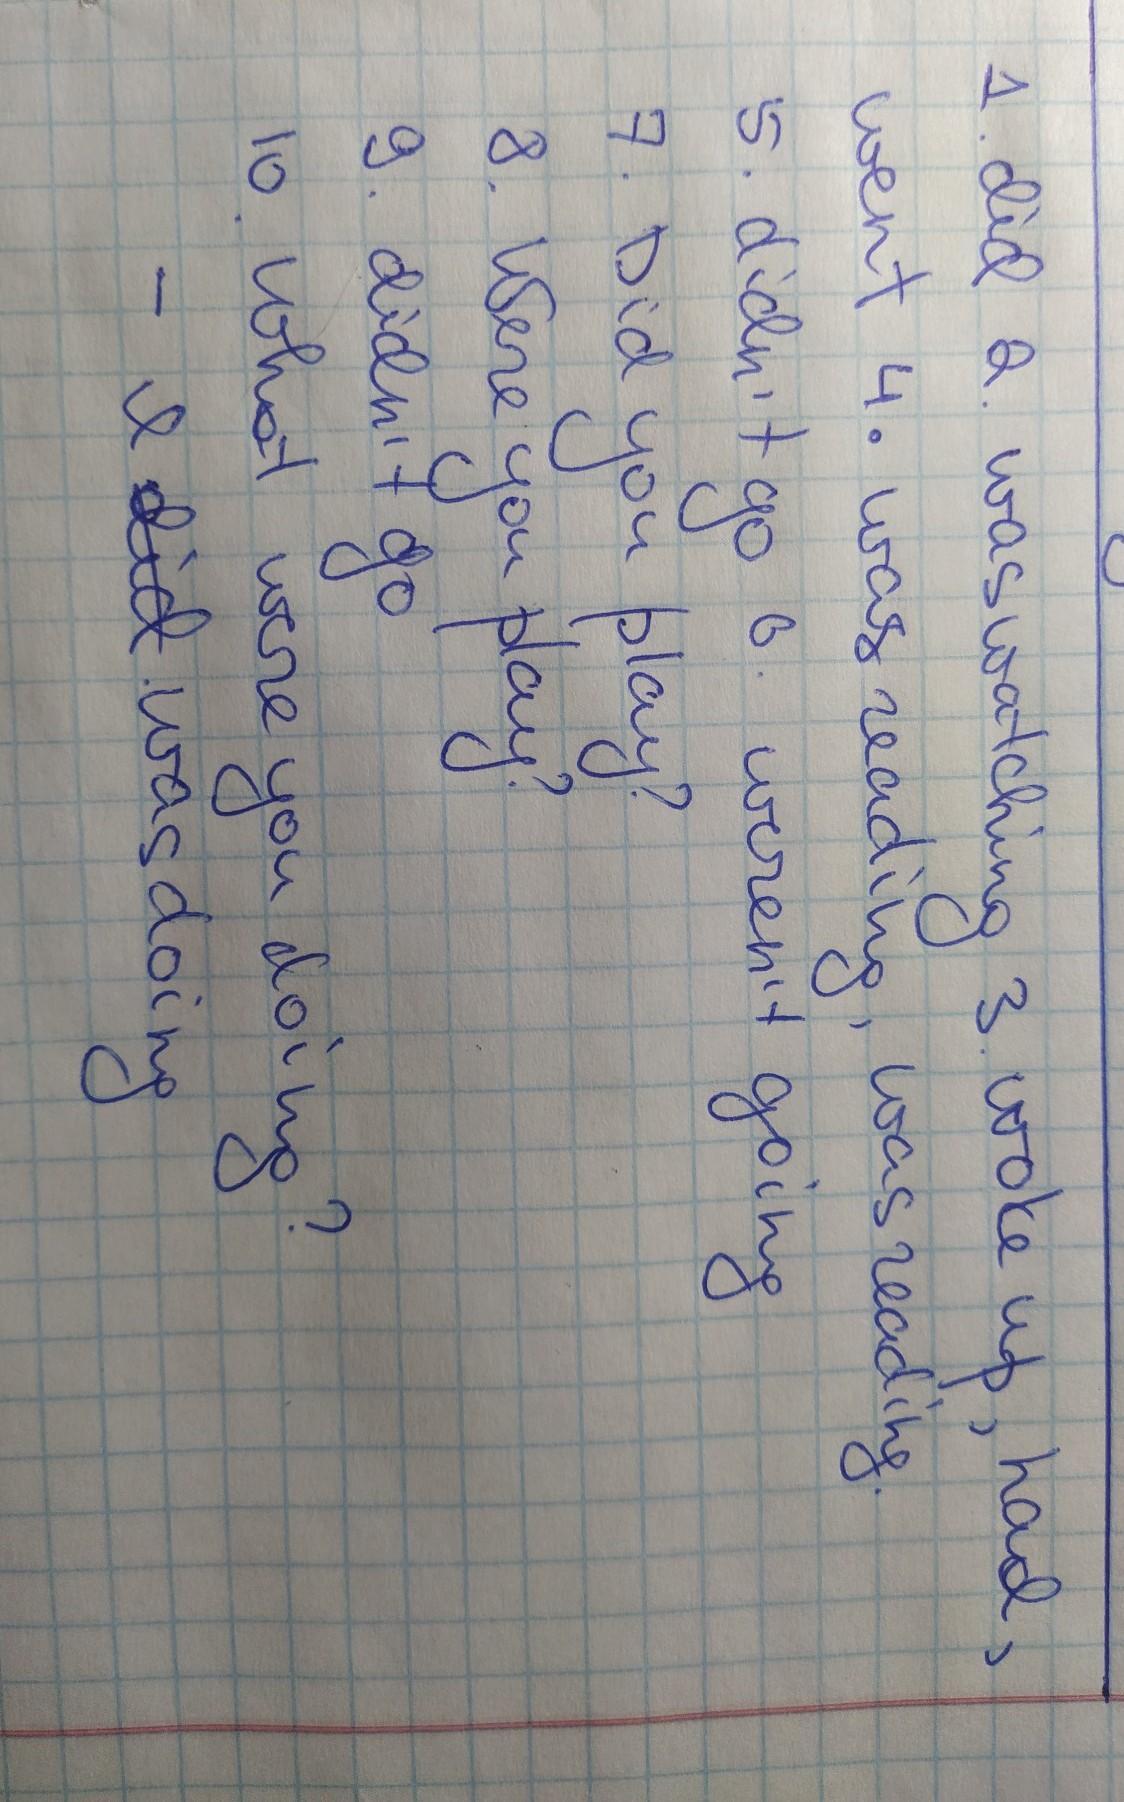 1. did 2. was watching 3. woke up, had,
went 4. was reading, was reading.
5. didn't go 6. weren't going
7. Did you play?
8. Were you play?
9. didn't go
10. What were you doing?
- I did. was doing